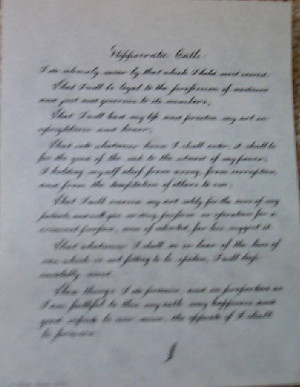 Hippocratic Oath
I do solemnly swear by that which I hold most sacred
That I will be loyal to the profession of medicine
and just and generous to its members,
That I will lead my life and practice my art in
uprightness and honor;
That into whatsoever house I shall enter, it shall be
for the good of the sick to the utmost of my power,
I holding myself aloof from wrong, from corruption,
and from the temptation of others to vice
That I will exercise my art solely for the cure of my
patients and will give no drug, perform no operation for a
criminal purpose, even if solicited, far less suggest it
That whatsoever I shall see or hear of the lives of
men which is not fitting to be spoken, I will keep
inviolably secret
These things I do promise, and in proportion as
I am faithful to this my oath may happiness and
good repute be ever mine, the opposite if I shall
be forsworn